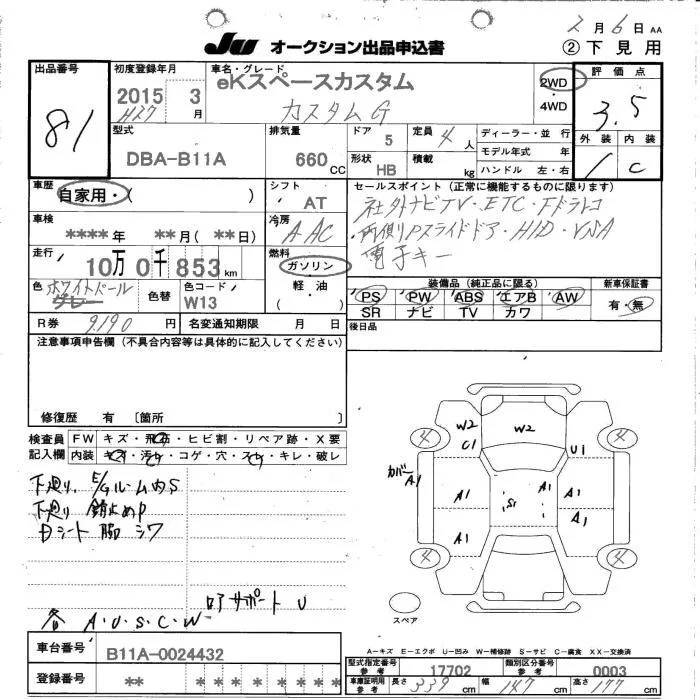 2月6日 AA
JU オークション出品申込書 ② 下見用
出品番号
81
初度登録年月
2015年 3月
H27
車名・グレード
eKスペースカスタム
カスタムG
2WD
4WD
評価点
3.5
外装 内装
1 C
型式
DBA-B11A
排気量
660CC
ドア 5
定員 4人
形状 HB
積載 kg
ディーラー・並行
モデル年式 年
ハンドル 左・右
車歴
自家用・( )
シフト
AT
セールスポイント(正常に機能するものに限ります)
社外ナビTV・ETC・ドラレコ
・両側Pスライドドア・HID・VSA
電子キー
車検
****年 **月(**日)
冷房
AAC
走行
10万0千853km
燃料
ガソリン
軽油
( )
色 ホワイトパール
グレー
色替
色コード
W13
装備品(純正品に限る)
PS PW ABS エアB AW
SR ナビ TV カワ
新車保証書
有・無
R券 9,190円
名変通知期限 月 日
後日品
注意事項申告欄(不具合内容等は具体的に記入してください)
修復歴 有 [箇所 ]
検査員記入欄
FW キズ・飛石・ヒビ割・リペア跡・X要
内装 キズ・汚れ・コゲ・穴・スレ・キレ・破レ
下廻り、E/Gルーム内S
下廻り 錆止めP
Dシート 脚 シワ
ロアサポート U
各 A・U・S・C・W
W2
C1
W2
U1
4
4
カバーA1
A1
S1
A1
A1
A1
A1
4
4
スペア
A-キズ E-エクボ U-凹み W-補修跡 S-サビ C-腐食 XX-交換済
車台番号
B11A-0024432
登録番号
** * * * * * * *
型式指定番号 参考
17702
類別区分番号 参考
0003
車庫証明用 参考
長さ 339cm
幅 147cm
高さ 177cm